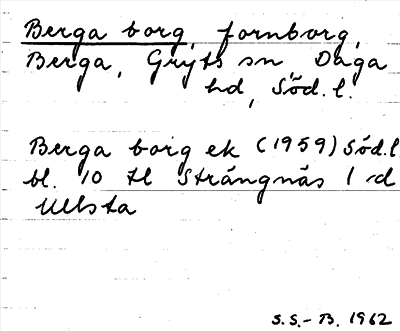 Berga borg, fornborg,
Berga, Gryts sn, Daga
hd, Söd. l.
Berga borg ek (1959) Söd. l.
bl. 10 tl Strängnäs 1 d
Ullsta
S.S.-B. 1962